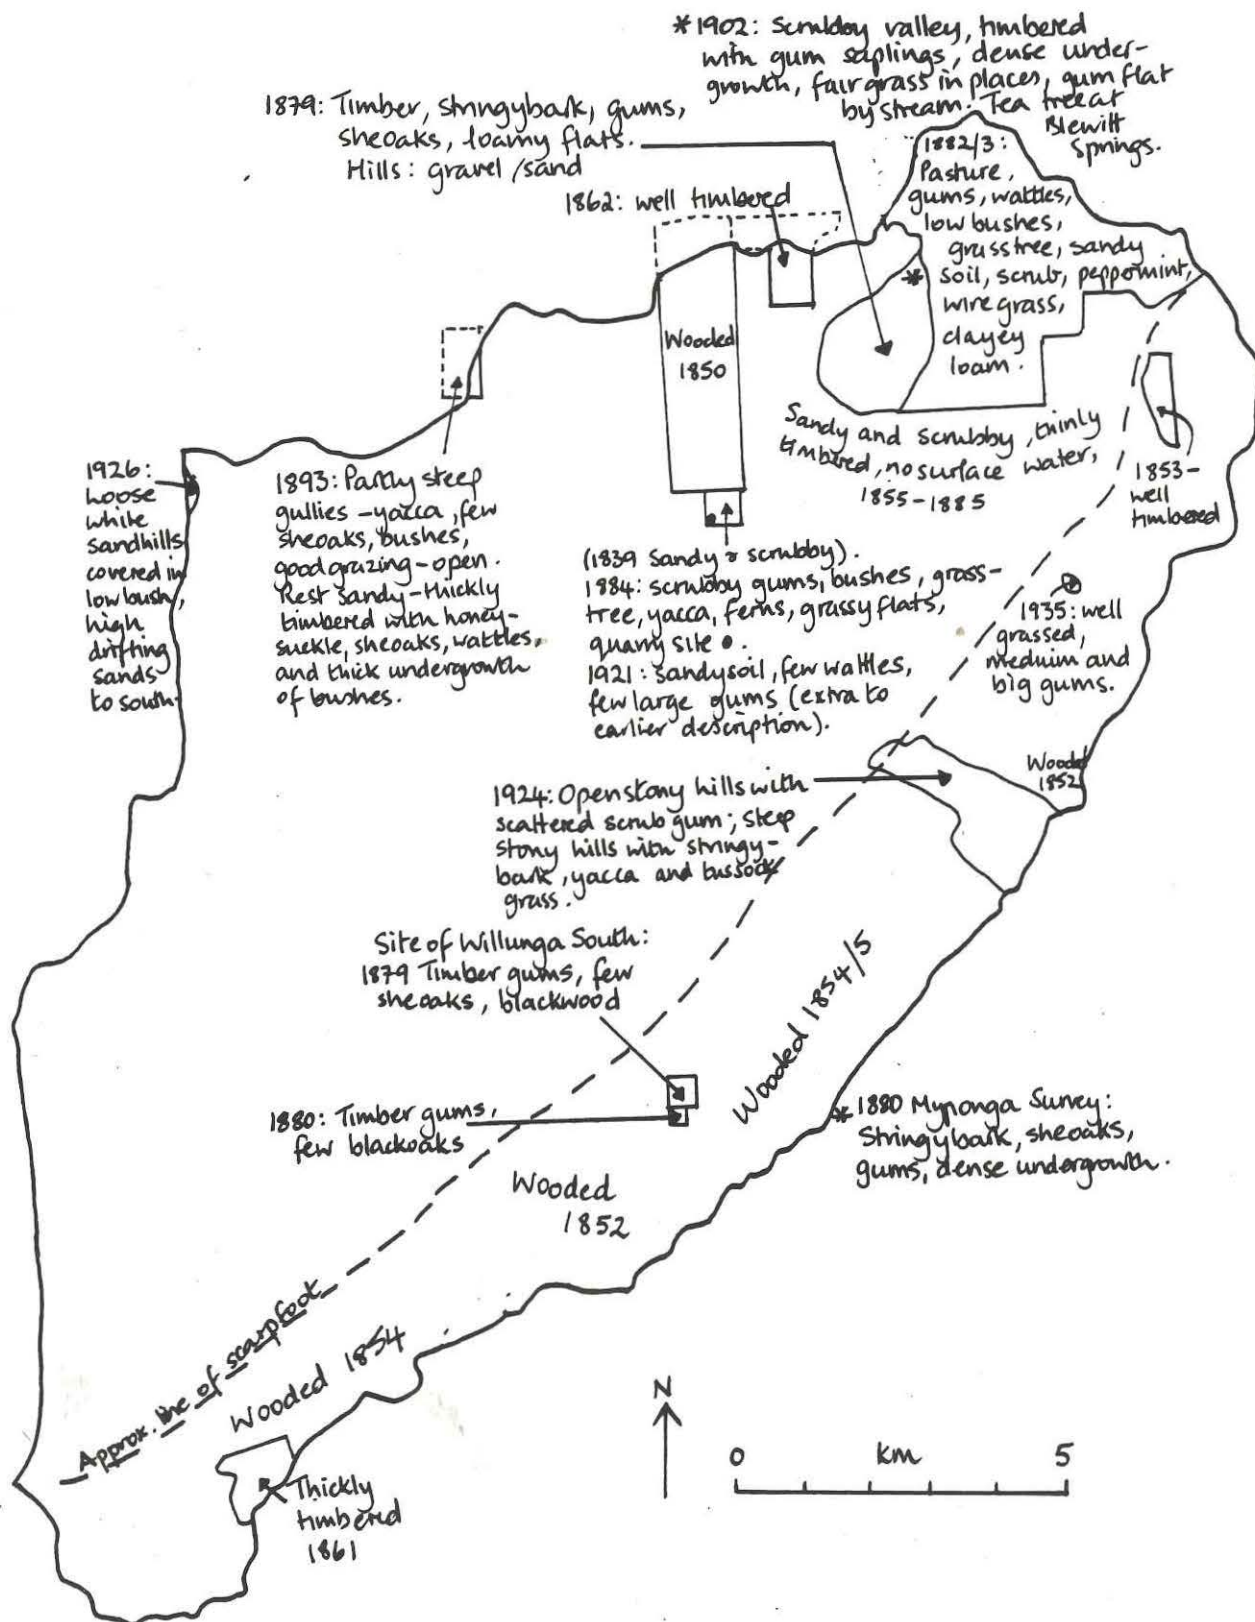 *1902: Scrubby valley, timbered
with gum saplings, dense under-
growth, fair grass in places, gum flat
by stream. Tea tree at
Blewitt
Springs.
1879: Timber, stringybark, gums,
sheoaks, loamy flats.
Hills: gravel/sand
1862: well timbered
1882/3:
Pasture,
gums, wattles,
low bushes,
grasstree, sandy
* soil, scrub, peppermint,
wire grass,
clayey
loam.
Wooded
1850
Sandy and scrubby, thinly
timbered, no surface water,
1855-1885
1853-
well
timbered
1926:
Loose
white
sandhills
covered in
low bush,
high
drifting
sands
to south.
1893: Partly steep
gullies - yacca, few
sheoaks, bushes,
good grazing - open.
Rest sandy - thickly
timbered with honey-
suckle, sheoaks, wattles,
and thick undergrowth
of bushes.
(1839 Sandy & scrubby).
1884: scrubby gums, bushes, grass-
tree, yacca, ferns, grassy flats,
quarry site •.
1921: sandy soil, few wattles,
few large gums (extra to
earlier description).
1935: well
grassed,
medium and
big gums.
Wooded
1852
1924: Open stony hills with
scattered scrub gum; steep
stony hills with stringy-
bark, yacca and tussock
grass.
Site of Willunga South:
1879 Timber gums, few
sheoaks, blackwood
Wooded 1854/5
1880: Timber gums,
few blackoaks
* 1880 Myponga Survey:
Stringybark, sheoaks,
gums, dense undergrowth.
Wooded
1852
Approx. line of scarp foot
Wooded 1854
Thickly
timbered
1861
N
0 km 5